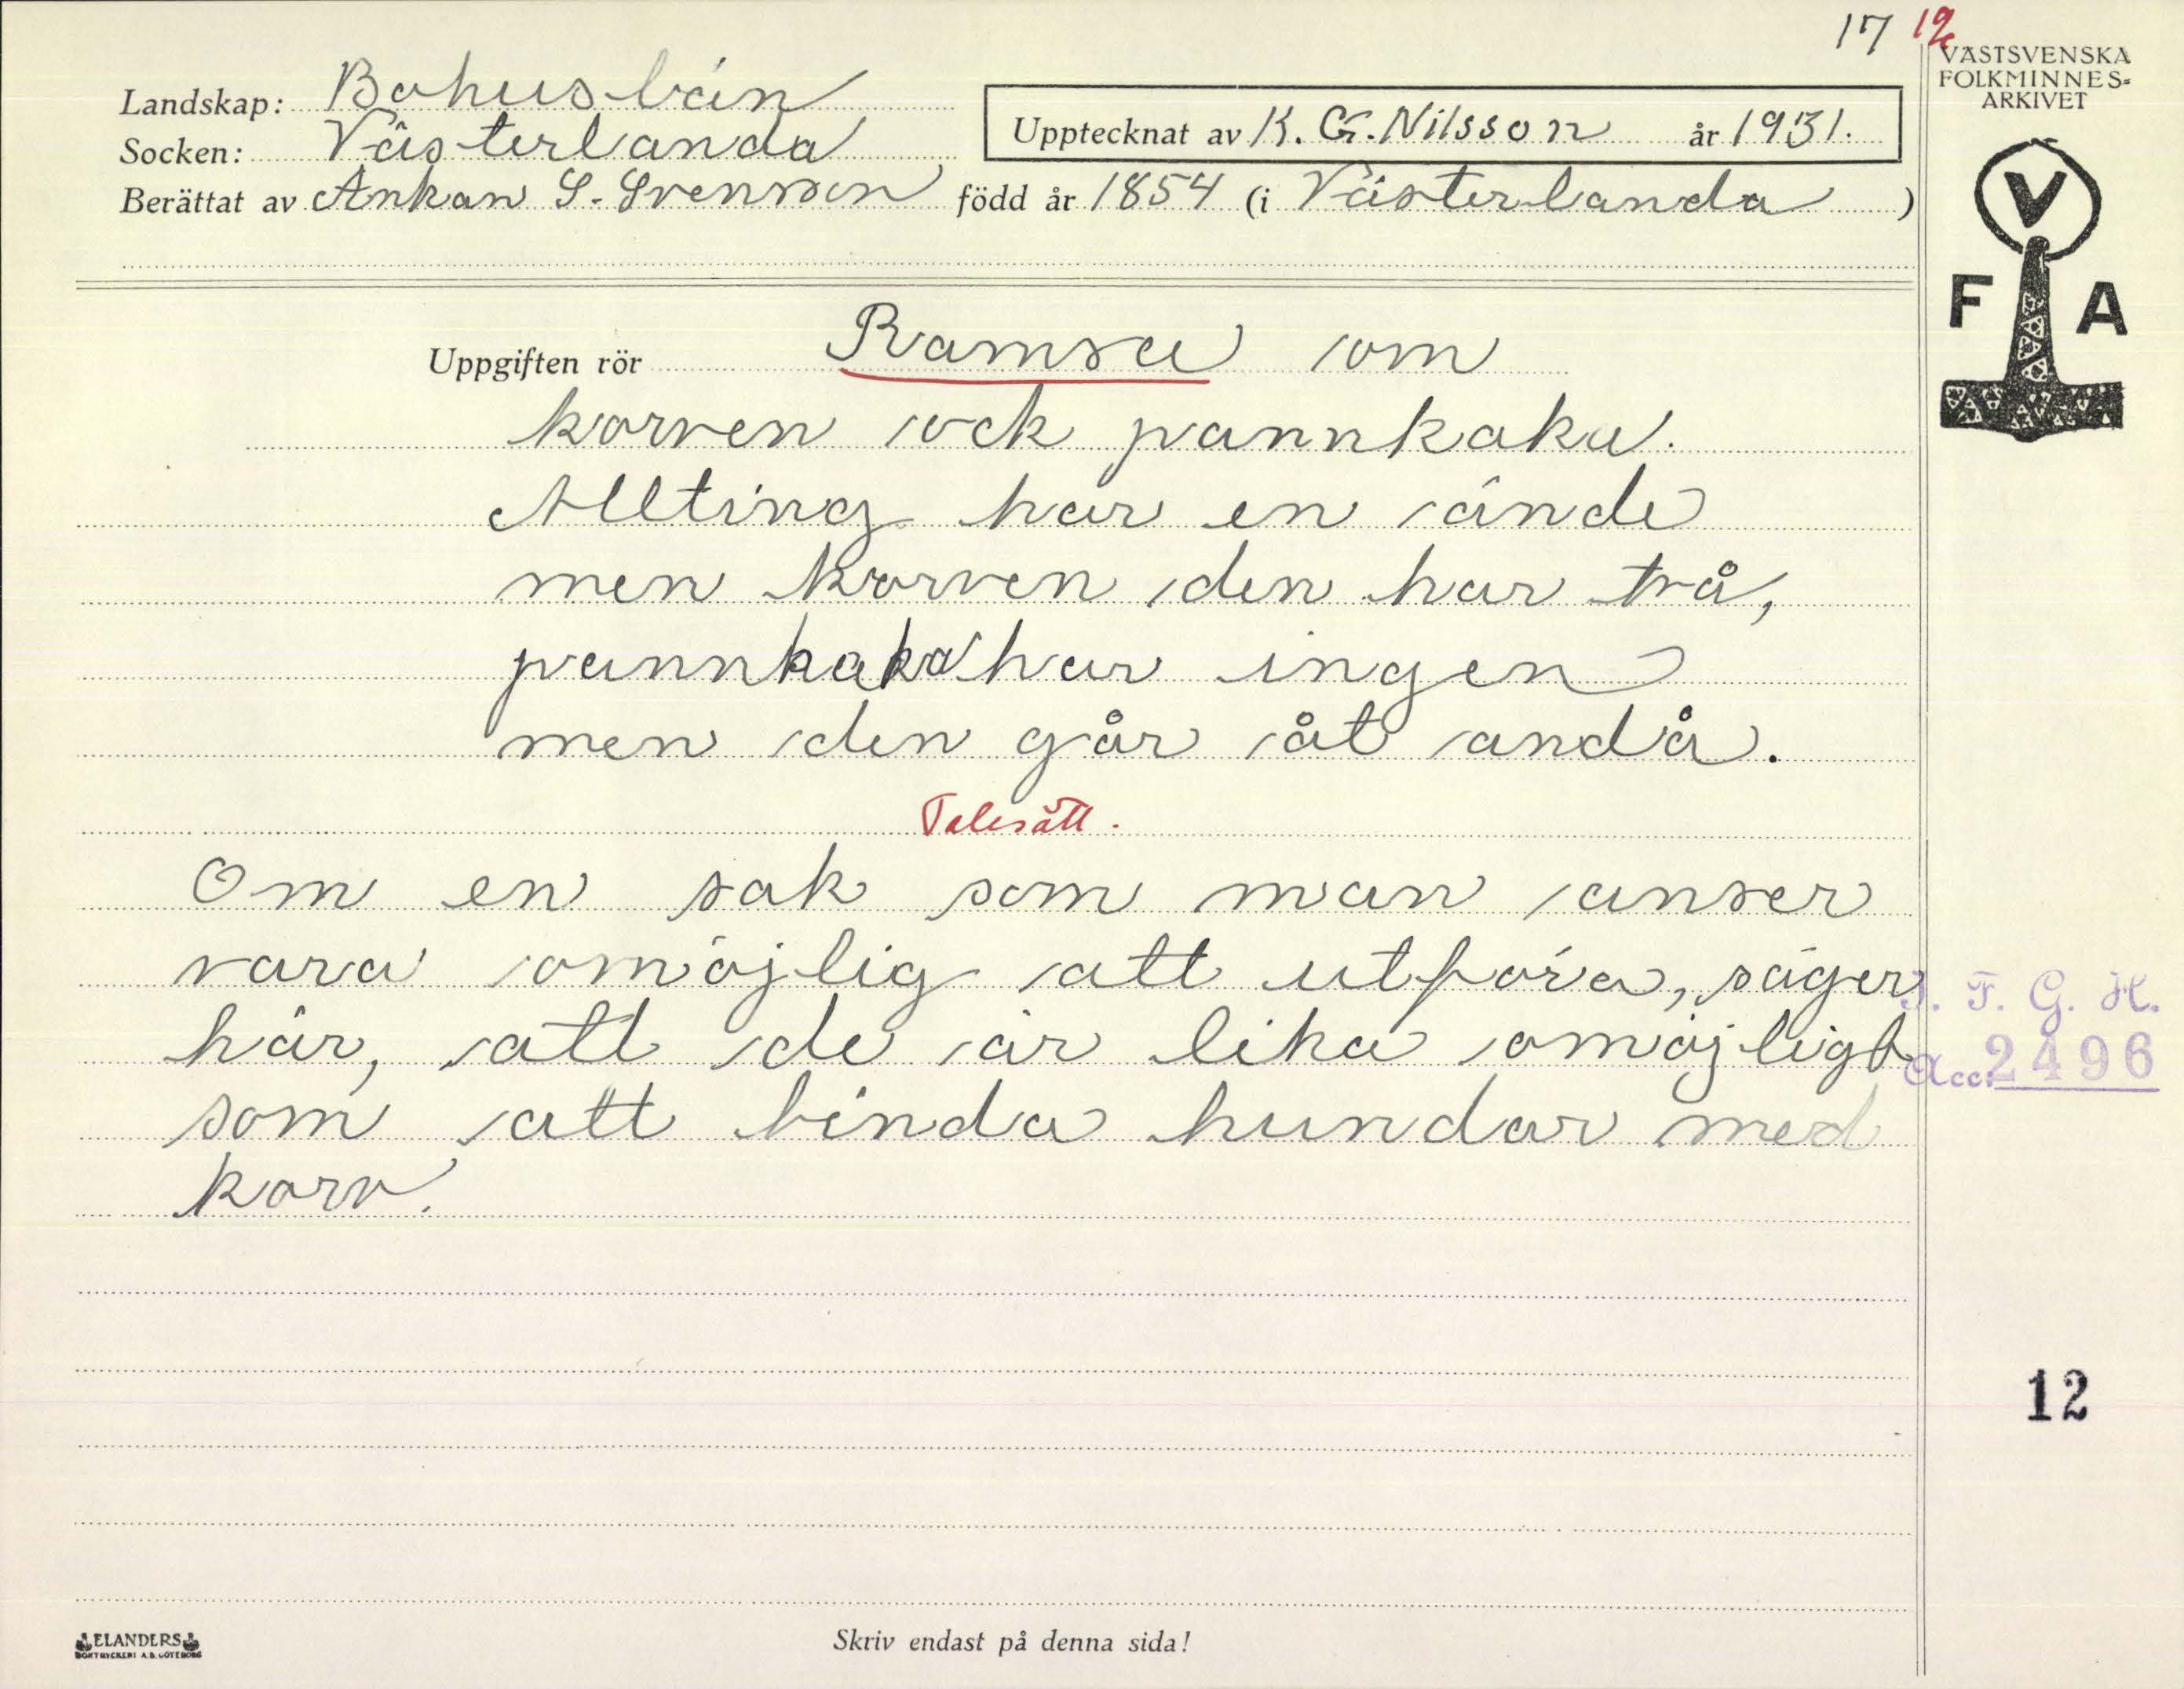 17 12
VÄSTSVENSKA
FOLKMINNES=
ARKIVET
V
F A
Landskap: Bohuslän
Socken: Västerlanda
Upptecknat av K. G. Nilsson år 1931.
Berättat av Ankan S. Svensson född år 1854 (i Västerlanda)
Uppgiften rör Ramsa om
korven ock pannkaka.
Allting har en ände
men korven den har två,
pannkaka har ingen
men den går åt ändå.
Talesätt.
Om en sak som man anser
vara omöjlig att utföra, säger
här, att de är lika omöjligt
som att binda hundar med
korv.
I. F. G. H.
Acc. 2496
12
ELANDERS
BOKTRYCKERI A.B. GÖTEBORG
Skriv endast på denna sida!